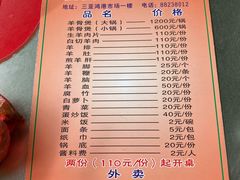 地址：三亚鸿港市场一楼 电话：88238012
品名 价格
羊骨煲（大锅） 1200元/份
羊骨煲（小锅） 600元/份
生羊肉片 110元/份
白切羊肉 110元/份
羊排 110元/份
羊肚 110元/份
煎羊肝 110元/份
羊脚 20元/条
羊鞭 20元/条
羊血 20元/份
腐竹 20元/份
白萝卜 20元/份
青菜 20元/份
羊炒饭 20元/份
米饭 2元/碗
面条 5元/包
纸巾 2元/包
锅底 20元/份
酱料费 2元/人
两份（110元/份）起开桌
外卖